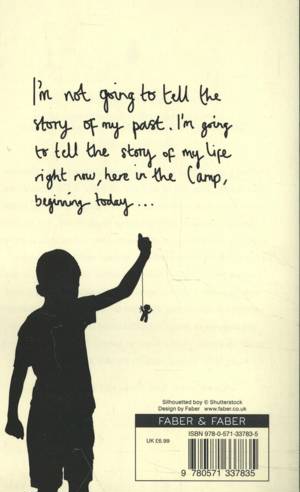 I'm not going to tell the
story of my past. I'm going
to tell the story of my life
right now, here in the Camp,
begining today...
Silhouetted boy © Shutterstock
Design by Faber www.faber.co.uk
FABER & FABER
ISBN 978-0-571-33783-5
UK £6.99
9 780571 337835